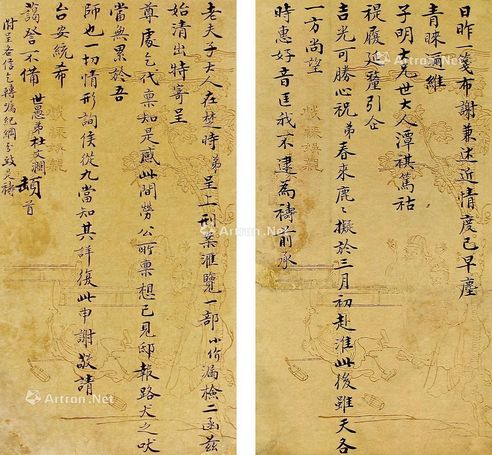 日昨箋布謝兼述近情度已早塵
青睞即維
子明十兄世大人潭祺篤祜
禔履延釐引企
吉光可勝心祝弟春來鹿鹿擬於三月初赴淮此後雖天各
一方尚望
時惠好音匡我不逮為禱前承
老夫子大人在楚時弟呈上刑案滙覽一部小价漏檢二函茲
始清出特寄呈
尊處乞代稟知是感此間勞公所稟想已見邸報路犬之吠
當無累於吾
師也一切情形詢侯從九當知其詳復此申謝敬請
台安統希
藹詧不備 世愚弟杜文瀾頓首
附呈各信乞轉囑紀綱分致是禱
Artron.Net
Artron.Net
Artron.Net
Artron.Net